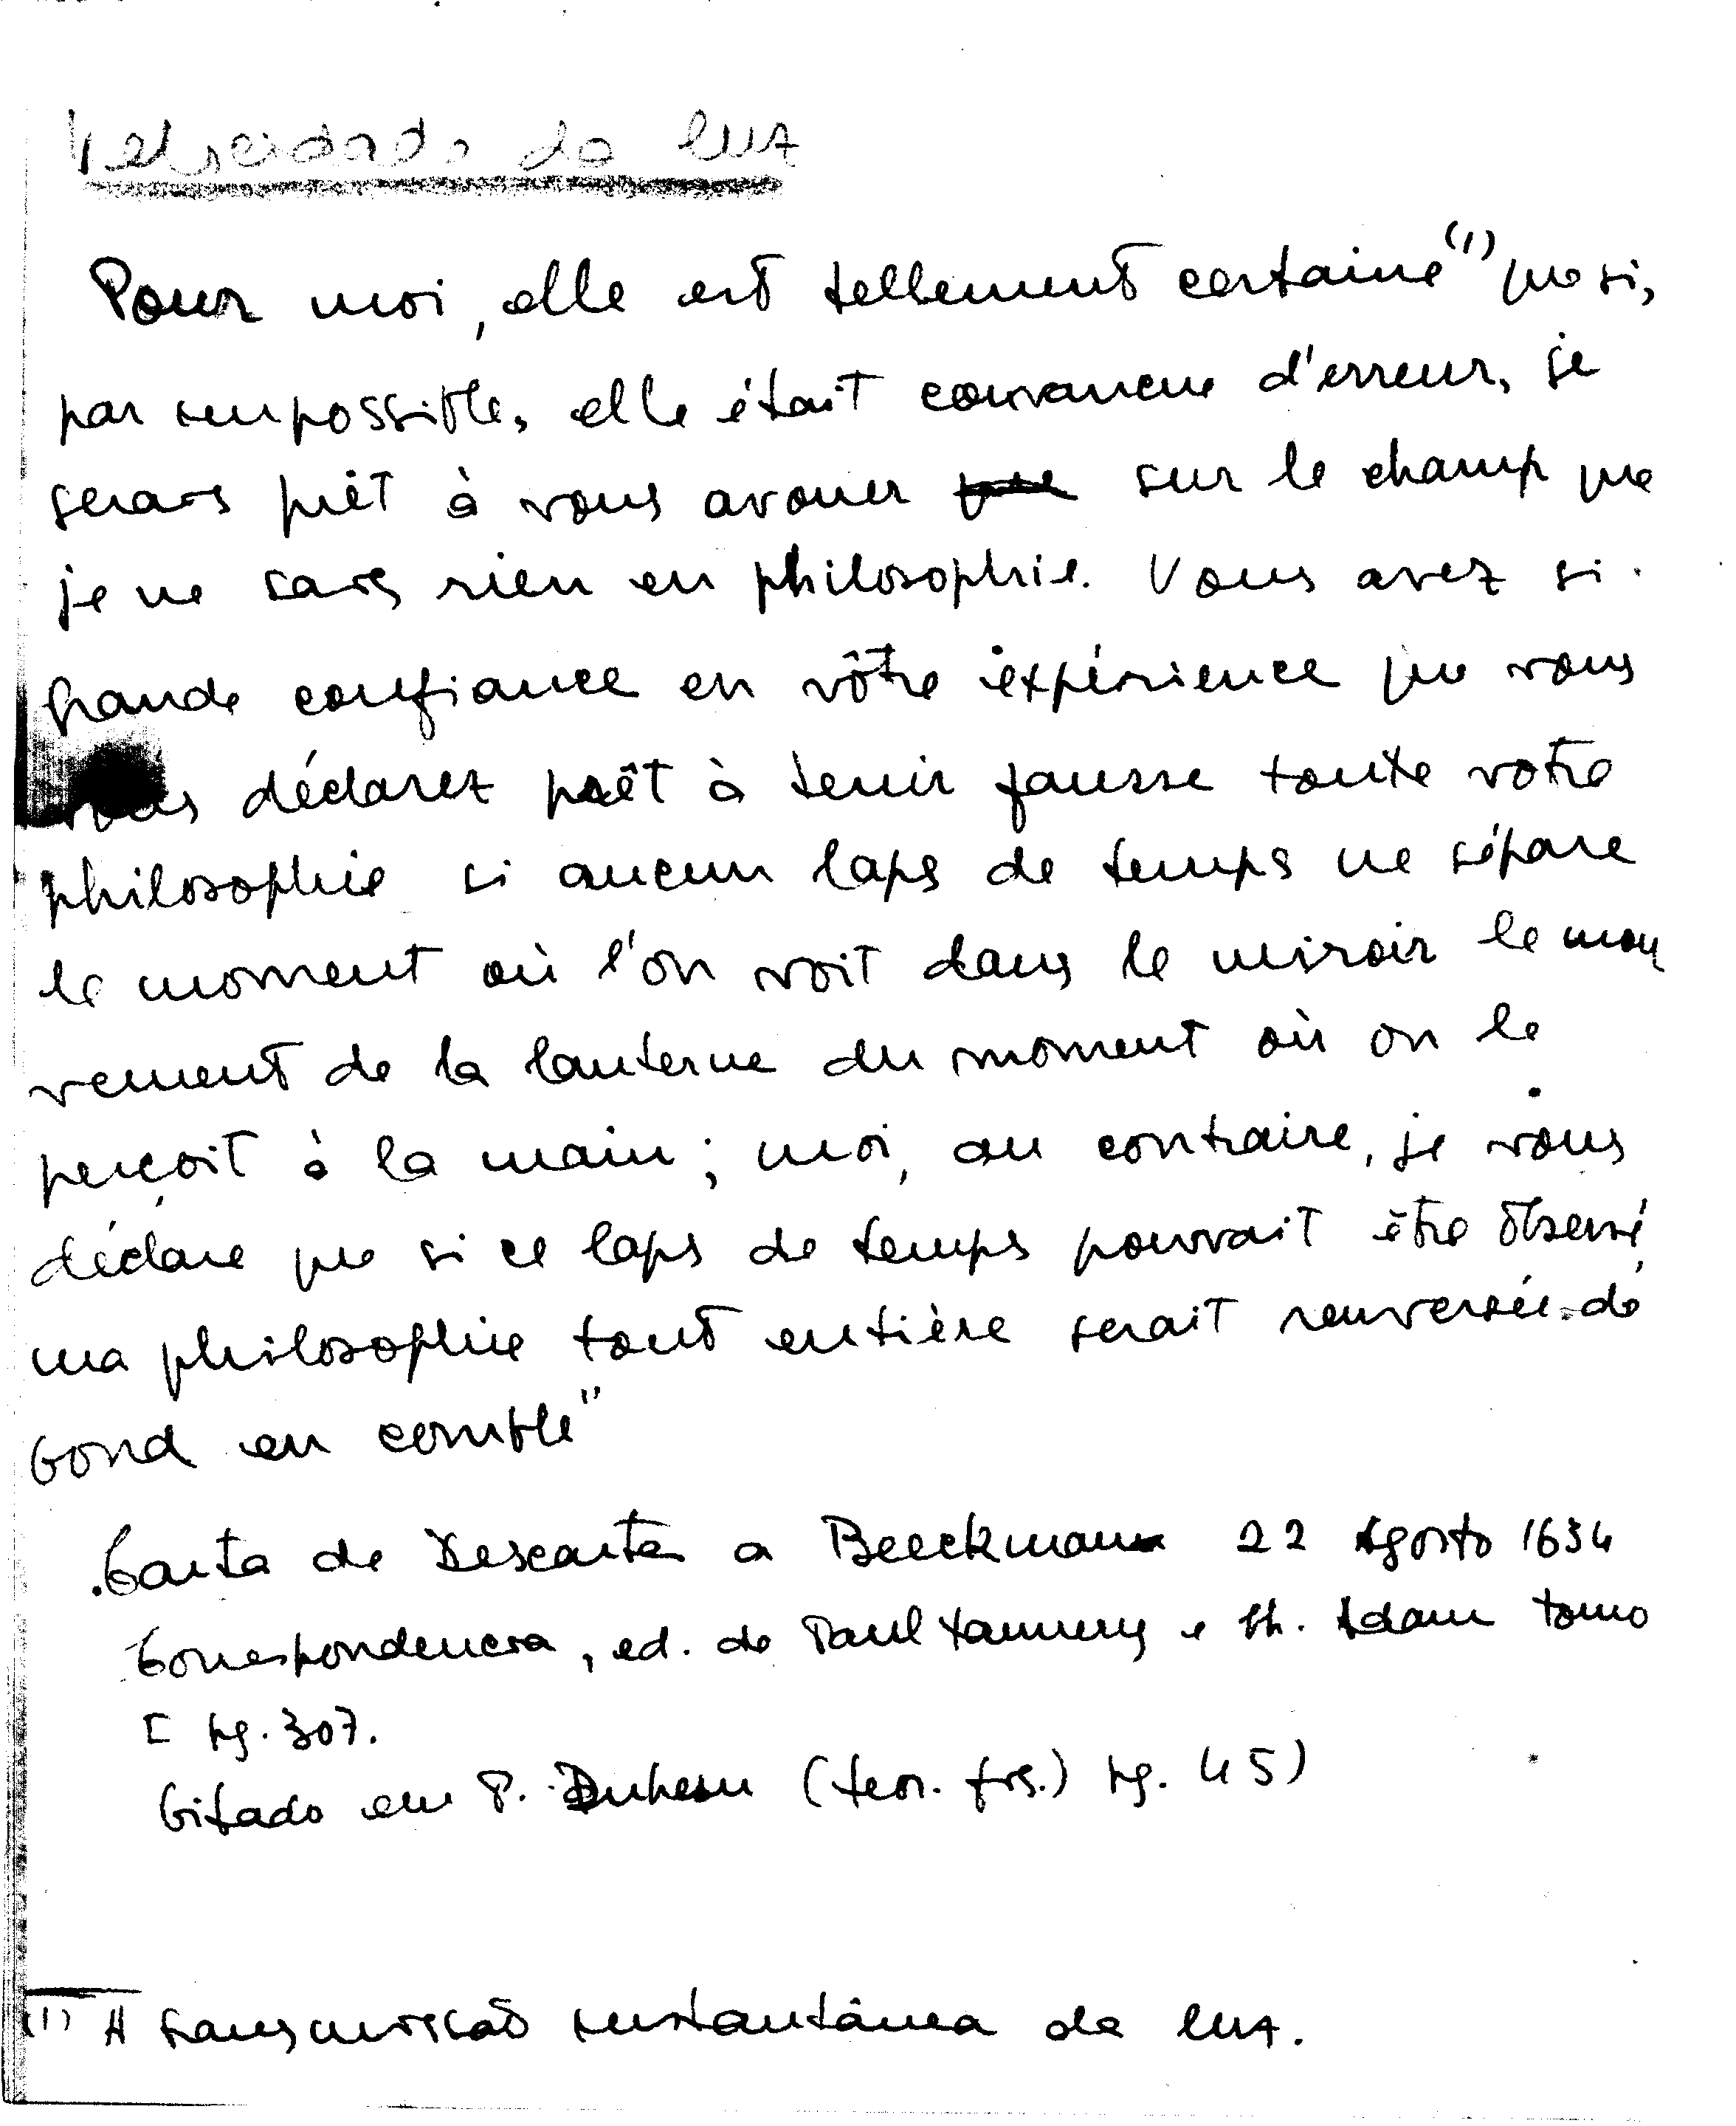 Velocidade da luz
Pour moi, elle est tellement certaine (1) que si,
par impossible, elle était convaincue d'erreur, je
serais prêt à vous avouer que sur le champ que
je ne sais rien en philosophie. Vous avez si
grande confiance en vôtre expérience que vous
vous déclarez prêt à tenir fausse toute votre
philosophie si aucun laps de temps ne sépare
le moment où l'on voit dans le miroir le mou
vement de la lanterne du moment où on le
perçoit à la main; moi, au contraire, je vous
déclare que si ce laps de temps pouvait être observé,
ma philosophie tout entière serait renversée de
fond en comble"
Carta de Descartes a Beeckman 22 Agosto 1634
Correspondencia, ed. de Paul Tannery e Ch. Adam tomo
I pg. 307.
Citado em P. Duhem (teor. fis.) pg. 45)
(1) A transmissão instantânea da luz.